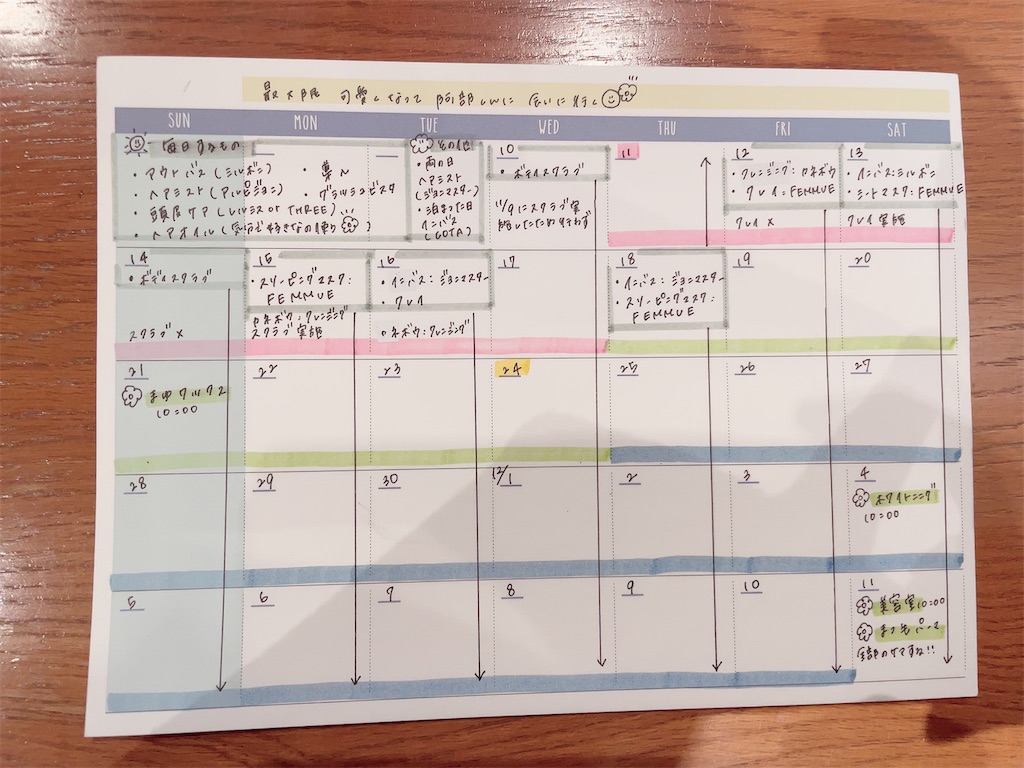 最大限 可愛くなって 阿部くんに 会いに行く
SUN MON TUE WED THU FRI SAT
毎日するもの
・アウトバス(ミルボン)
・ヘアミスト(アルビオン)
・頭皮ケア(レルミス or THREE)
・ヘアオイル(気分で好きなの使う)
・導入
その他
・雨の日
ヘアミスト
(ジョンマスター)
・泊まった日
インバス
(GOTA)
10
・ボディスクラブ
11/9にスクラブ実
施したため行わず
11
12
・クレンジング:カネボウ
・クレイ:FEMMUE
クレイ×
13
・インバス:ミルボン
・シートマスク:FEMMUE
クレイ実施
14
・ボディスクラブ
スクラブ×
15
・スリーピングマスク:
FEMMUE
カネボウ:クレンジング
スクラブ実施
16
・インバス:ジョンマスター
・クレイ
カネボウ:クレンジング
17
18
・インバス:ジョンマスター
・スリーピングマスク:
FEMMUE
19
20
21
まゆワックス
10:00
22
23
24
25
26
27
28
29
30
12/1
2
3
4
ホワイトニング
10:00
5
6
7
8
9
10
11
美容室10:00
まつ毛パーマ
全部のケアする!!